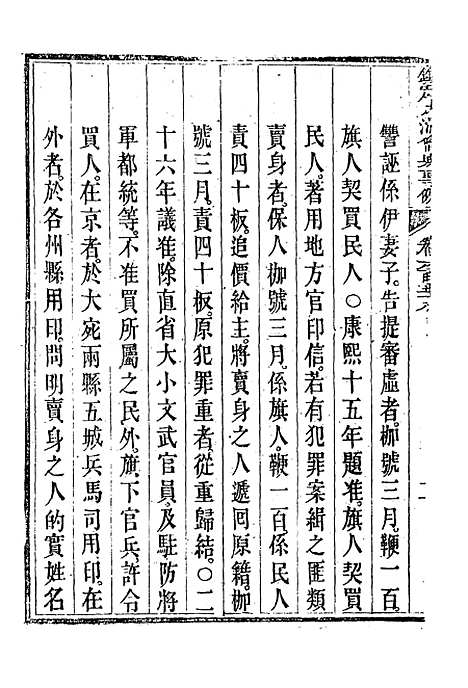 讐誣係伊妻子。告提審虛者。枷號三月。鞭一百。
旗人契買民人〇康熙十五年題准。旗人契買
民人。著用地方官印信。若有犯罪案緝之匪類
賣身者。保人枷號三月。係旗人。鞭一百。係民人
責四十板。追價給主。將賣身之人遞回原籍。枷
號三月。責四十板。原犯罪重者。從重歸結。〇二
十六年議准。除直省大小文武官員。及駐防將
軍都統等。不准買所屬之民外。旗下官兵。許令
買人。在京者。於大宛兩縣五城兵馬司用印。在
外者。於各州縣用印。問明賣身之人的實姓名